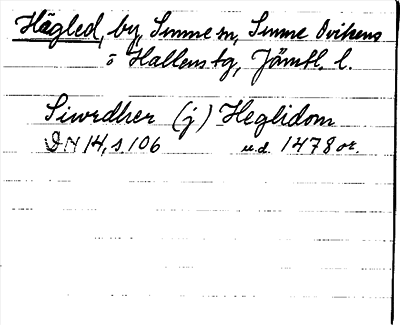 Hägled, by, Sunne sn, Sunne Ovikens
o Hallens tg, Jämtl. l.
Siwrdher (j) Heglidom
DN 14, s 106 u.d. 1478 or.